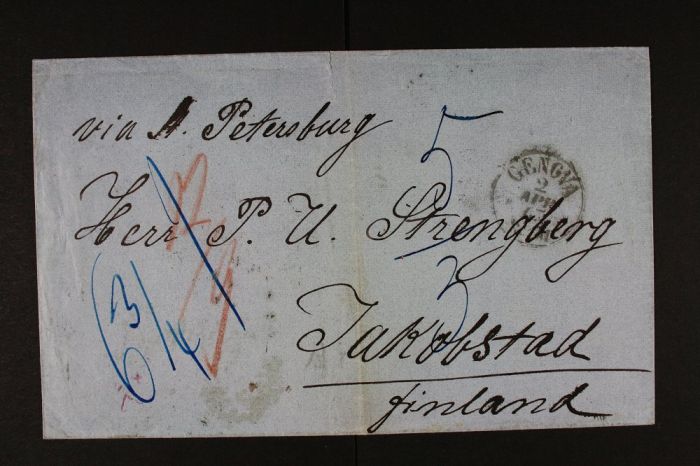 via St. Petersburg
5
GENOVA
2
APR
Herr P. U. Strengberg
6 3/4
3
Jakobstad
finland